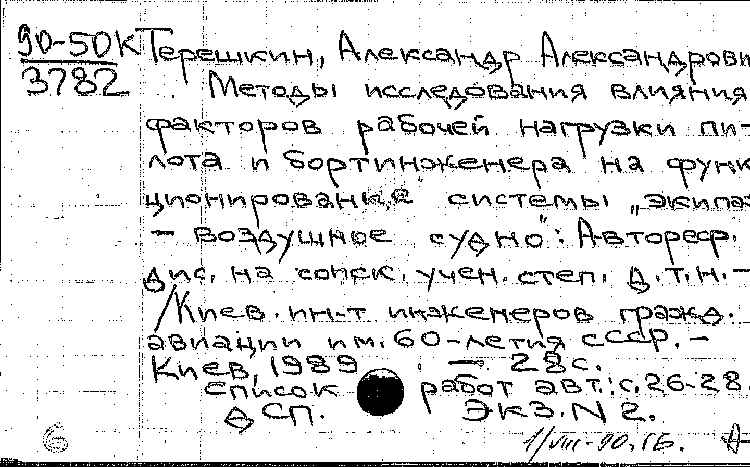 90-50К Терешкин, Александр Александрови
3782
Методы исследования влияния
факторов рабочей нагрузки пи-
лота и бортинженера на функ
ционирование системы „экипаж
- воздушное судно": Автореф.
дис. на соиск. учен. степ. д.т.н. -
/Киев. ин-т инженеров гражд.
авиации им. 60-летия СССР. -
Киев, 1989. - 28 с.
Список работ авт.: с. 26-28
ДСП. Экз. N 2.
6
1/VIII-90. ГБ. А-